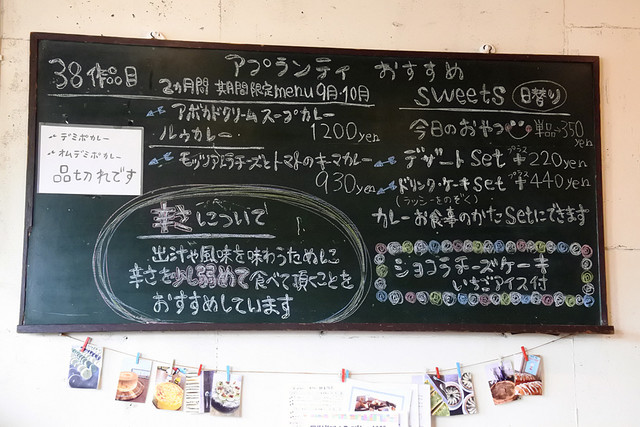 38作品目
アプランティ おすすめ
2カ月間 期間限定menu 9月・10月
アボカドクリームスープカレー
ルゥカレー 1200yen
モッツァレラチーズとトマトのキーマカレー
930yen
デミポカレー
オムデミポカレー
品切れです
辛さについて
出汁や風味を味わうために
辛さを少し弱めて食べて頂くことを
おすすめしています
sweets 日替り
今日のおやつ 単品350yen
デザートset プラス220yen
ドリンク・ケーキset プラス440yen
(ラッシーをのぞく)
カレーお食事のかたsetにできます
ショコラチーズケーキ
いちごアイス付